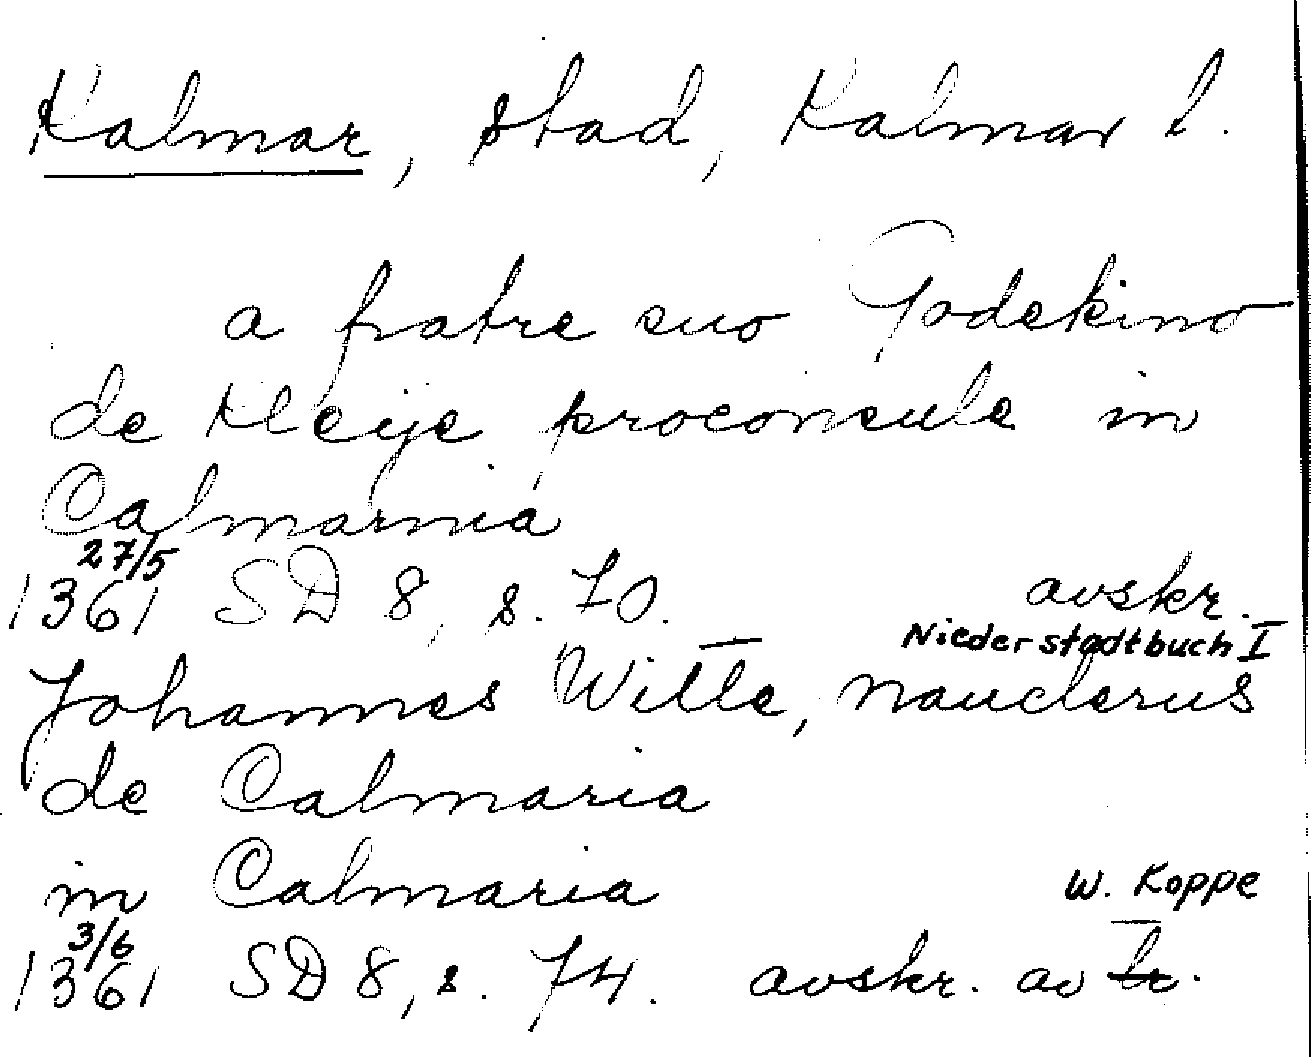 Kalmar, stad, Kalmar l.
a fratre suo Godekino
de Kleije proconsule in
Calmarnia
27/5
1361 SD 8, s. 70. avskr.
Niederstadtbuch I
Johannes Witte, nauclerus
de Calmaria
in Calmaria W. Koppe
3/6
1361 SD 8, s. 74. avskr. av tr.